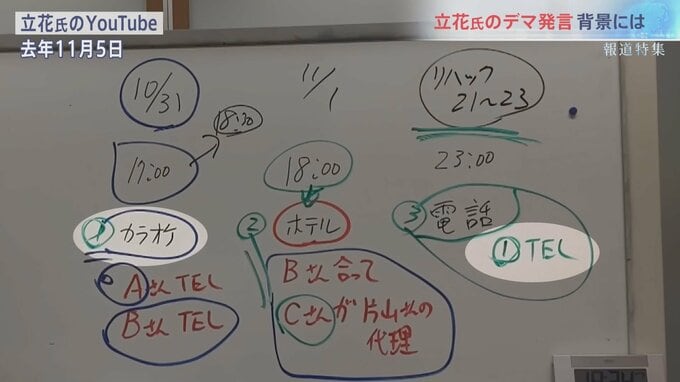 立花氏のYouTube
去年11月5日
立花氏のデマ発言 背景には
報道特集
10/31
17:00
18:30
① カラオケ
Aさん TEL
Bさん TEL
11/1
18:00
② ホテル
Bさん 合って
Cさんが片山さんの
代理
リハック
21〜23
23:00
③ 電話
① TEL